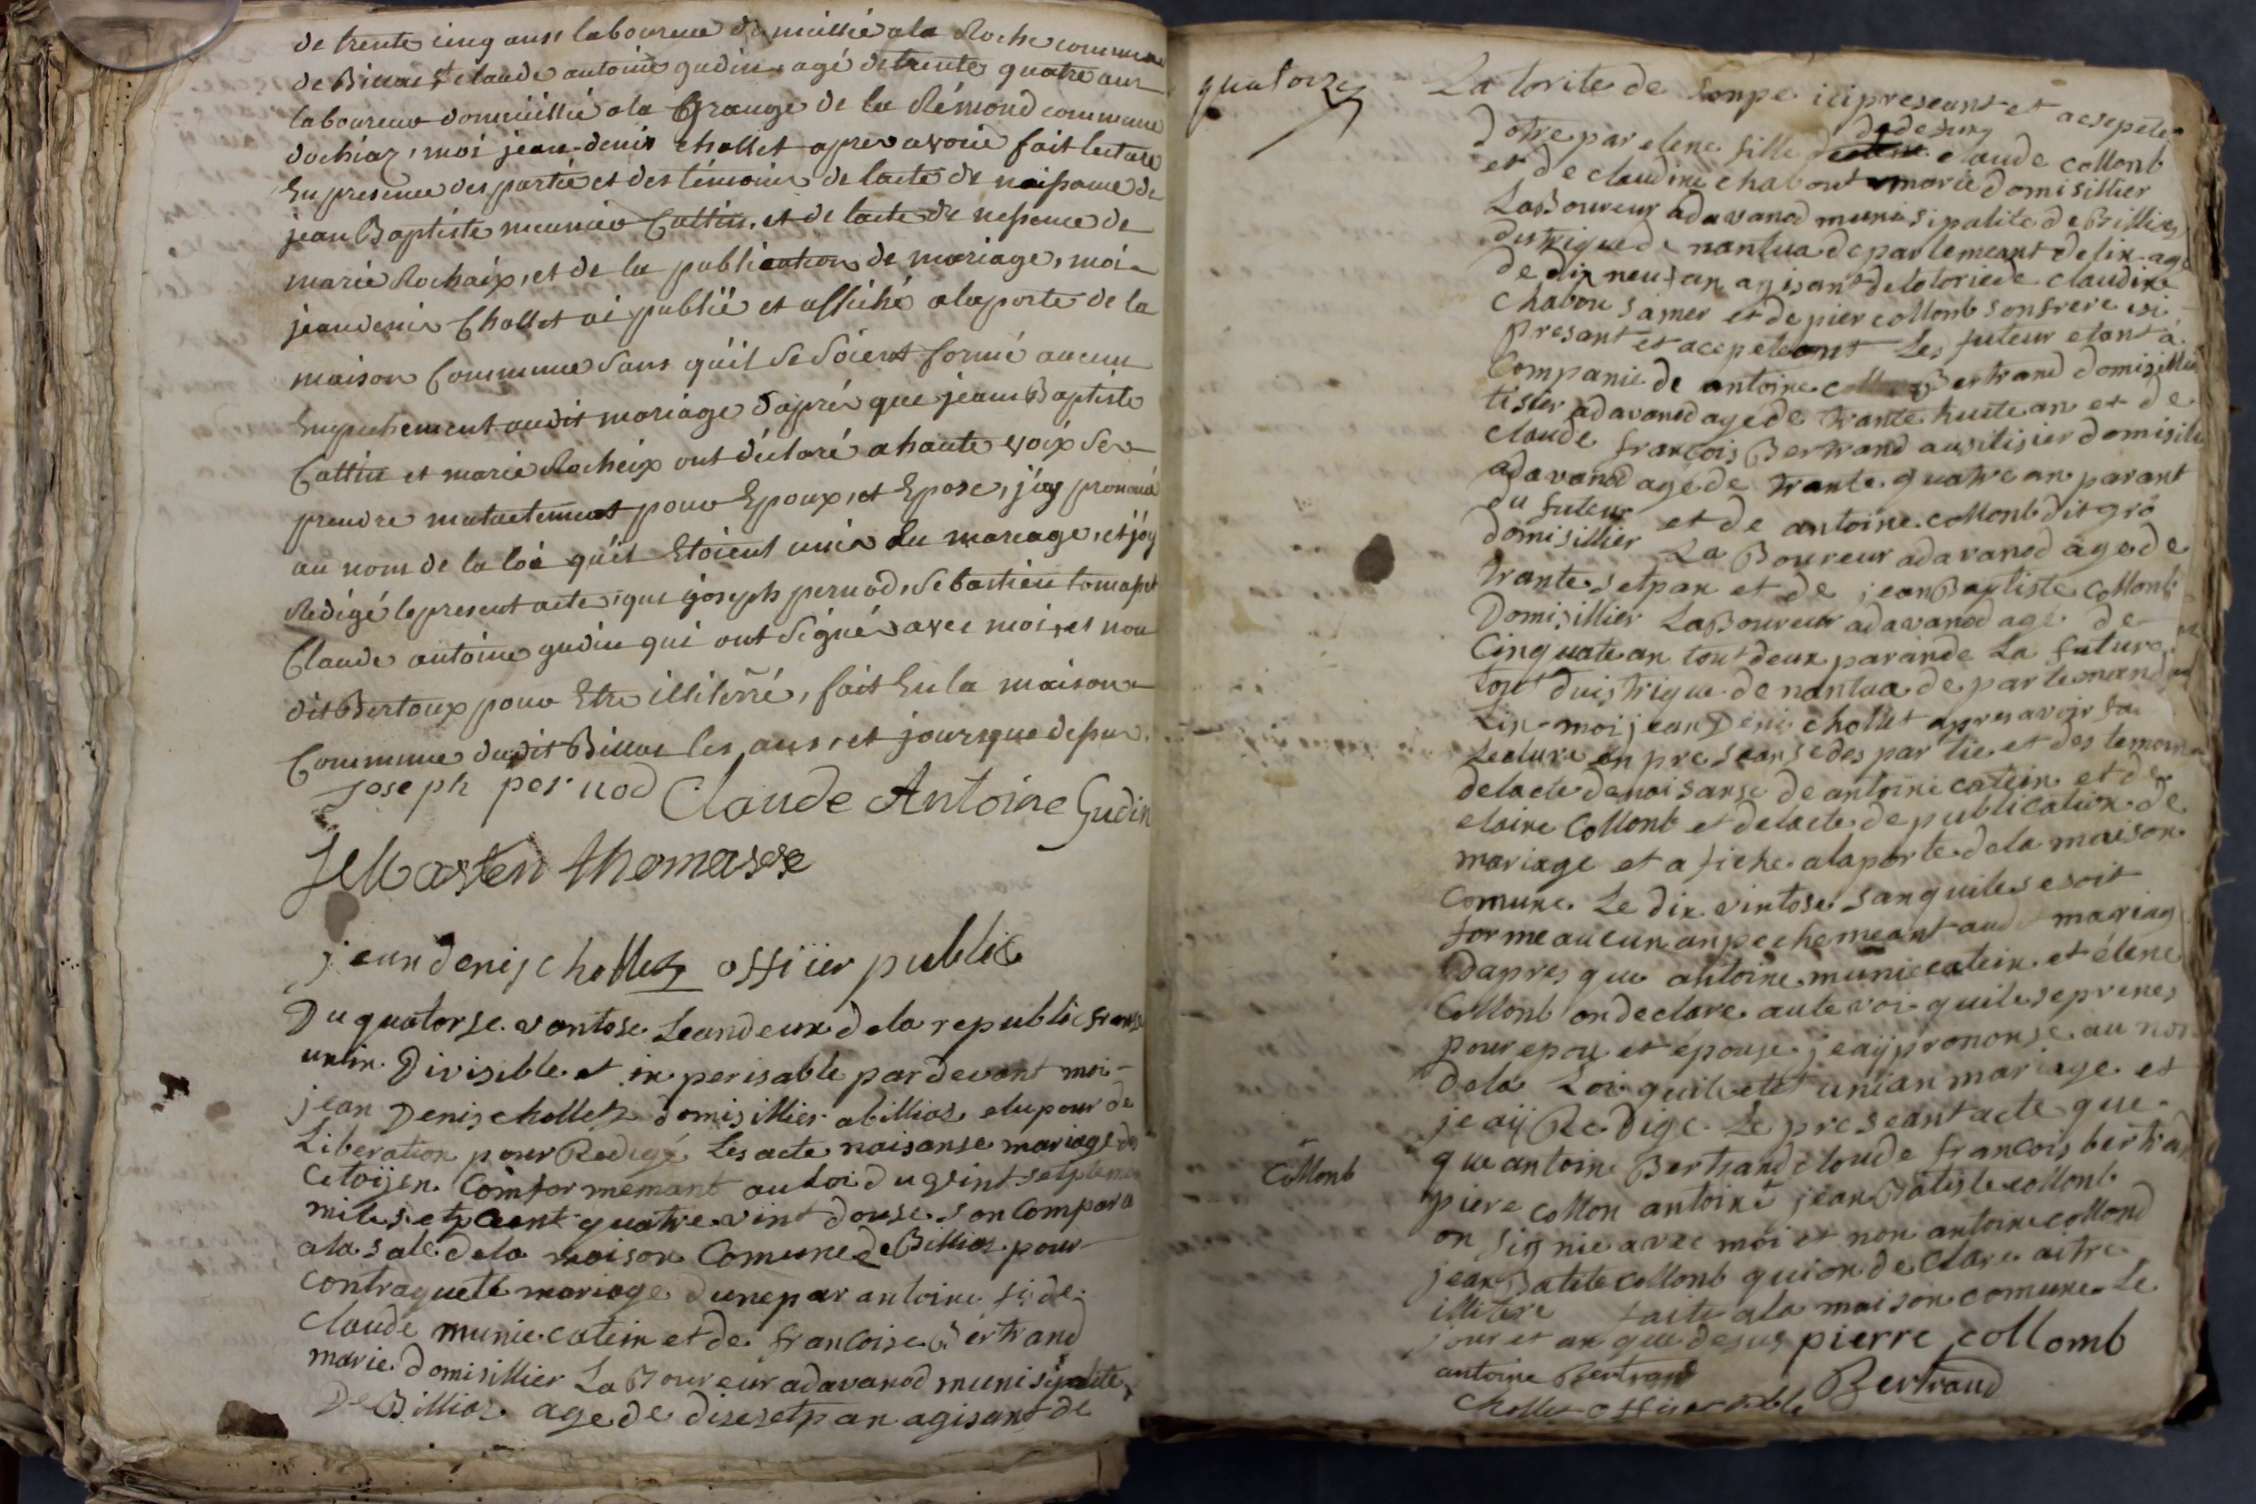 de trente cinq ans laboureur domicillié a la Roche commune
de Billiat et claude antoine gudin, agé de trente quatre ans
laboureur domicillié a la Grange de la Rémond commune
dochiaz, moi jean-denis chollet apres avoir fait lecture
En presence des partie et des témoins de lacte de naissance de
jean Baptiste meunier Cattin, et de lacte de nessance de
marie Rochaix, et de la publication de mariage, moi
jean denis Chollet ai publié et affiché a la porte de la
maison Commune sans qu'il se soient formé aucun
Empechement audit mariage d'aprés que jean Baptiste
Cattin et marie Rocheix ont déclaré a haute voix se
prendre mutuetement pour Epoux, et Epose, j'ay prononcé
au nom de la loi qu'il Etoient unis en mariage, et j'ay
Redigé le present acte, que joseph pernod, Sebastien tomasset
Claude antoine gudin qui ont Signé avec moi, et non
dit Bertoux pour Etre illiterré, fait En la maison
Commune dudit Billiat les, ans, et jours que desus.
Joseph pernod Claude Antoine Gudin
Sebasten thomasse
jean denis chollet offiier public
Du quatorse vantose Leandeux dela republic franse
unin Divisible et in perisable par devant moi
jean Denis chollet domisillier abillias elu pour de
Liberation pour Redigé Les acte naisanse mariage des
Citoijen Comformemant au Loi du veint setpteme
mile setpt cent quatre vint douse son Compara
ala sale dela maison Comune de Billias pour
Contraquete mariage dune par antoine fi de
Claude munie catein et de francoise Bertrand
marie domisillier La Boureur adavanod munisipalite
De Billias age de disesetp an agisant de
quatorze
La torite de ici preseant et
dotre par elene fille claude collonb
et de claudine chabout marie domisillier
La Boureur adavanod munisipalite de Billias
destrique de nantua departemeant delin age
de dix neuf an agisant de lotoriede claudine
Chabou samer et de pier collonb son frere isi
presant et acepteant Les futeur etant a
Companie de antoine Bertrand domisillier
tisier adavanod agede trante huite an et de
claude francois Bertrand ausi tisier domisili
adavanod agede trante quatre an parant
du futeur et de antoine collonb dit gro
domisillier La Boureur adavanod agede
trante setpan et de jean Baptiste Collonb
Domisillier La Boureur adavanod age de
Cinquate an tout deux parande La future
tout duistrique de nantua departemand
Lin moi jean Denis chollet apres avoir fa
Lecture an preseansedes partie et des temoin
delacte de naisanse de antoine catein et de
elaine Collonb et delacte de publication de
mariage et afiche alaporte dela maison
Comune Le dix vintose sanquile se soit
forme aucun anpechemeant aud mariag
Dapres que antoine munie catein et elene
Collonb on declare aute voi quile seprenes
pour epou et épouse jeaij prononse au non
dela Loi quil etet unian mariage et
je aij Redige Le preseant acte que
que antoine Bertrand cloude francois bertran
Collonb
piere collon antoine jean Batiste collonb
on signie avec moi et non antoine collond
jean Batite collonb quion de clare aitre
illitere faite ala maison comune Le
jour et an que desus pierre collomb
antoine Bertrand Bertraud
Chollet